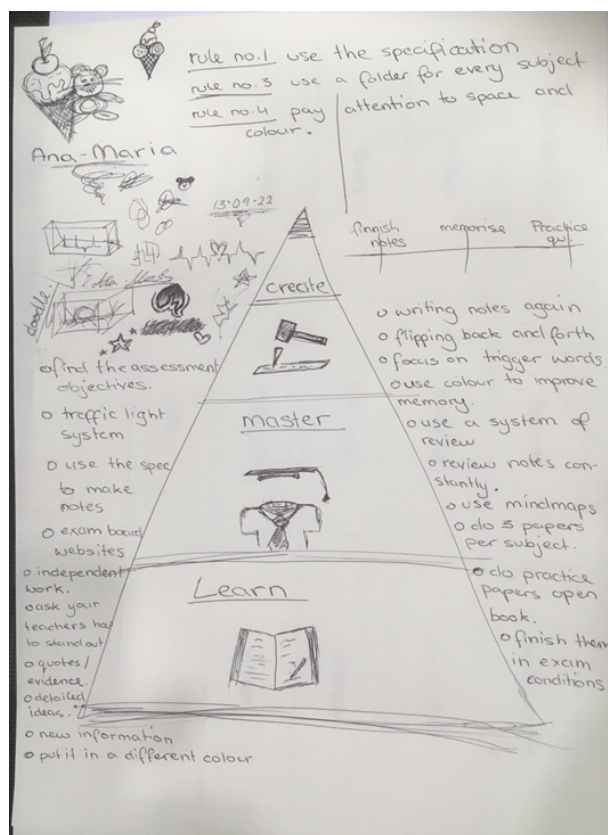 rule no.1 use the specification
rule no.3 use a folder for every subject
rule no.4 pay attention to space and
colour.
Ana-Maria
13·09·22
doodle.
finnish memorise Practice
notes qu.
create
master
Learn
o find the assessment
objectives.
o traffic light
system
o use the spec
to make
notes
o exam board
websites
o independent
work.
o ask your
teachers how
to stand out
o quotes/
evidence.
o detailed
ideas.
o new information
o put it in a different colour
o writing notes again
o flipping back and forth
o focus on trigger words.
o use colour to improve
memory.
o use a system of
review
o review notes con-
stantly.
o use mindmaps
o do 5 papers
per subject.
o do practice
papers open
book.
o finish them
in exam
conditions